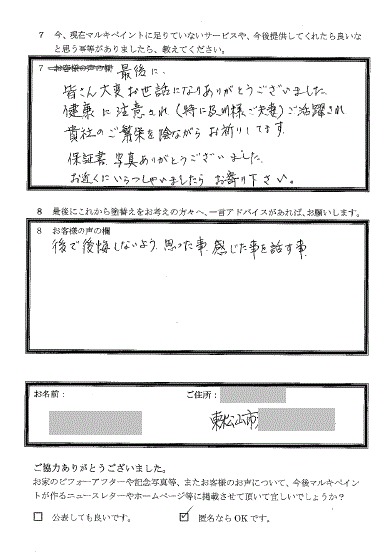 7 今、現在マルキペイントに足りていないサービスや、今後提供してくれたら良いな
と思う事等がありましたら、教えてください。
7 お客様の声の欄 最後に、
皆さん大変お世話になりありがとうございました。
健康に注意され(特に及川様ご夫妻)ご活躍され
貴社のご繁栄を陰ながらお祈りしてます。
保証書、写真ありがとうございました。
お近くにいらっしゃいましたらお寄り下さい。
8 最後にこれから塗替えをお考えの方々へ、一言アドバイスがあれば、お願いします。
8 お客様の声の欄
後で後悔しないよう、思った事、感じた事を話す事。
お名前: ご住所:
東松山市
ご協力ありがとうございました。
お家のビフォーアフターや記念写真等、またお客様のお声について、今後マルキペイン
トが作るニュースレターやホームページ等に掲載させて頂いて宜しいでしょうか?
□ 公表しても良いです。 ☑ 匿名ならOKです。